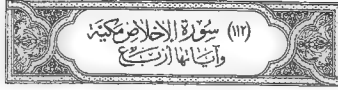 (١١٢) سُورَةُ الإِخْلَاصِ مَكِيَّة
وَآيَاتُهَا أَرْبَعٌ